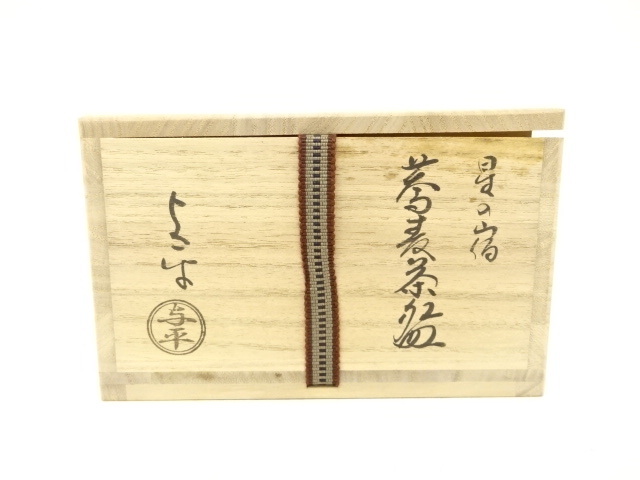 星の宿
蕎麦茶盌
よへい
与平